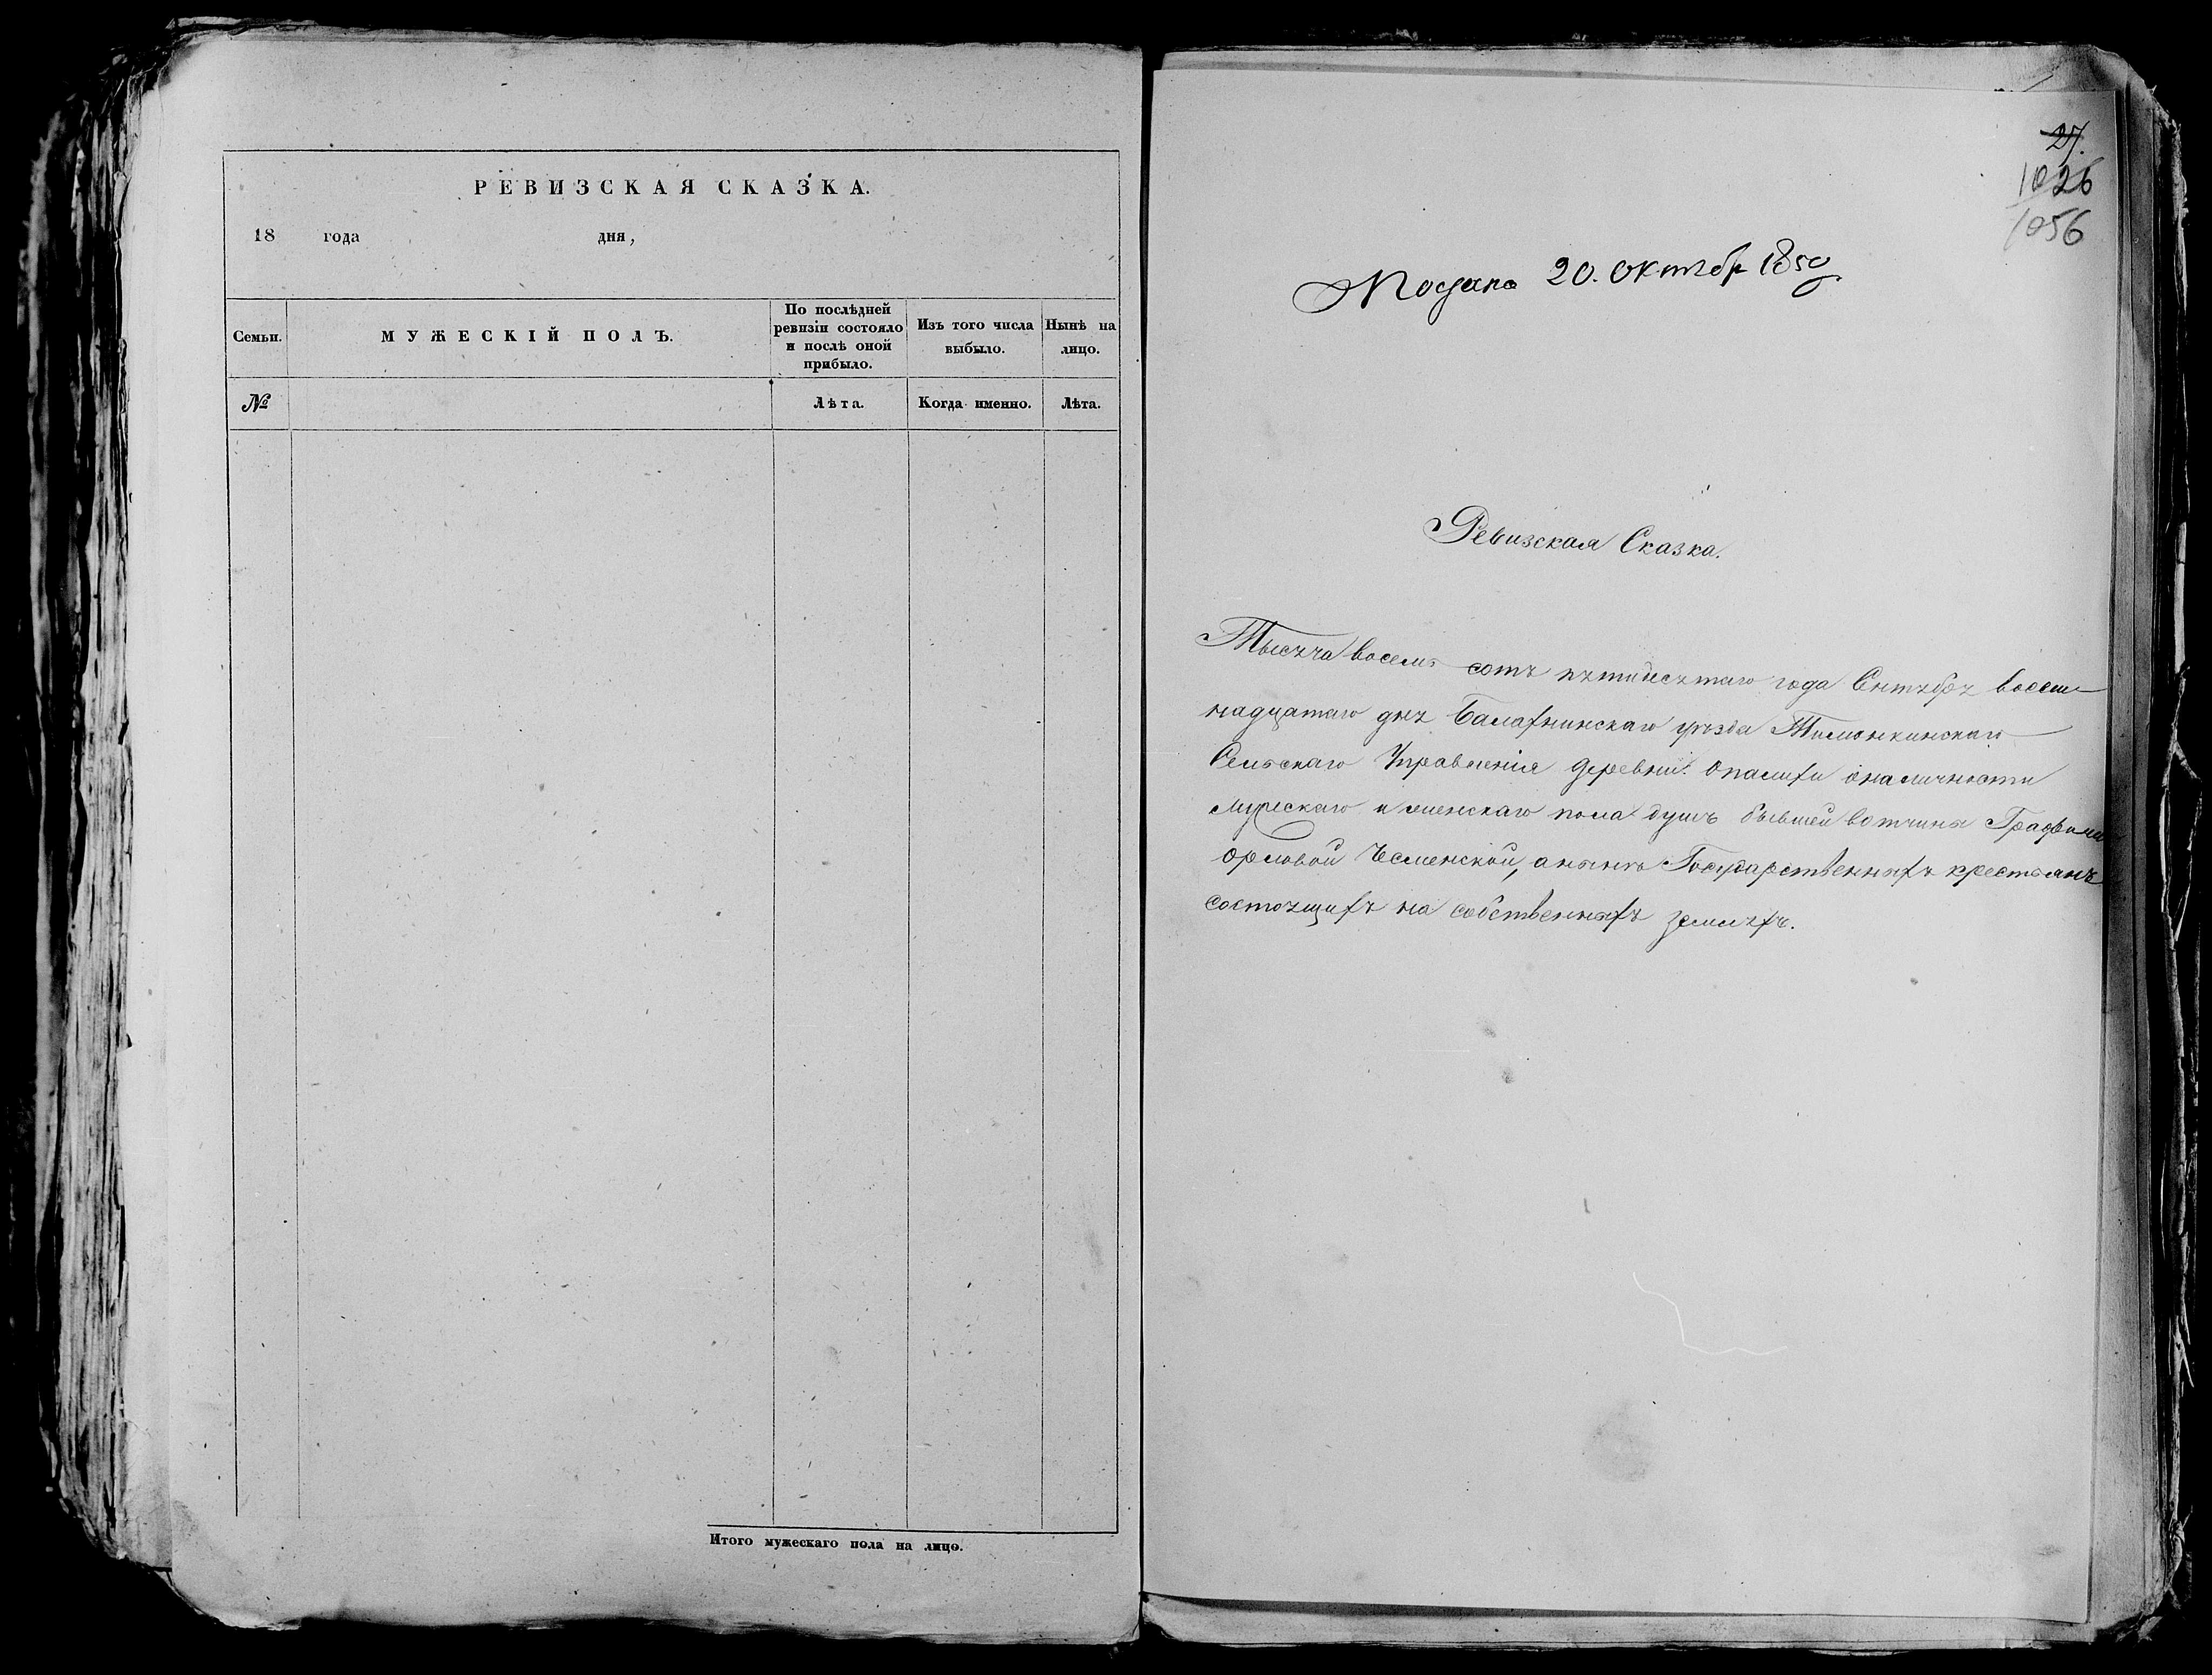 РЕВИЗСКАЯ СКАЗКА.
18 года дня,
Семьи.
МУЖЕСКІЙ ПОЛЪ.
По послѣдней
ревизіи состояло
и послѣ оной
прибыло.
Изъ того числа
выбыло.
Нынѣ на
лицо.
№
Лѣта.
Когда именно.
Лѣта.
Итого мужескаго пола на лицо.
27.
1026
1056
Подана 20. Октябр 1850
Ревизская Сказка.
Тысяча восемь сотъ пятидесятаго года Сентября восем
надцатаго дня Балахнинскаго уѣзда Тимонкинскаго
Сельскаго Управленія деревни Опалихи оналичности
мужескаго и женскаго пола душъ бывшей вотчины Графини
Орловой Чесменской, анынѣ Государственныхъ крестьянъ
состоящихъ на собственныхъ земляхъ.